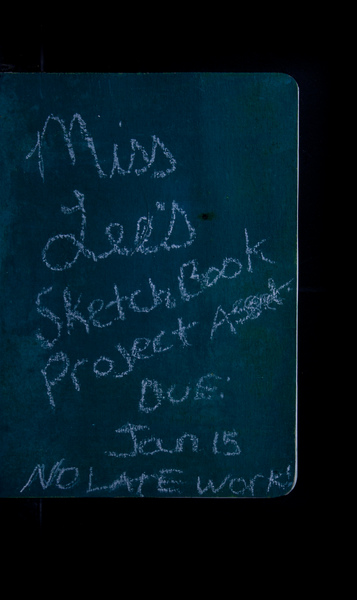 Miss
Lee's
SketchBook
Project
DUE:
Jan 15
NO LATE WORK!